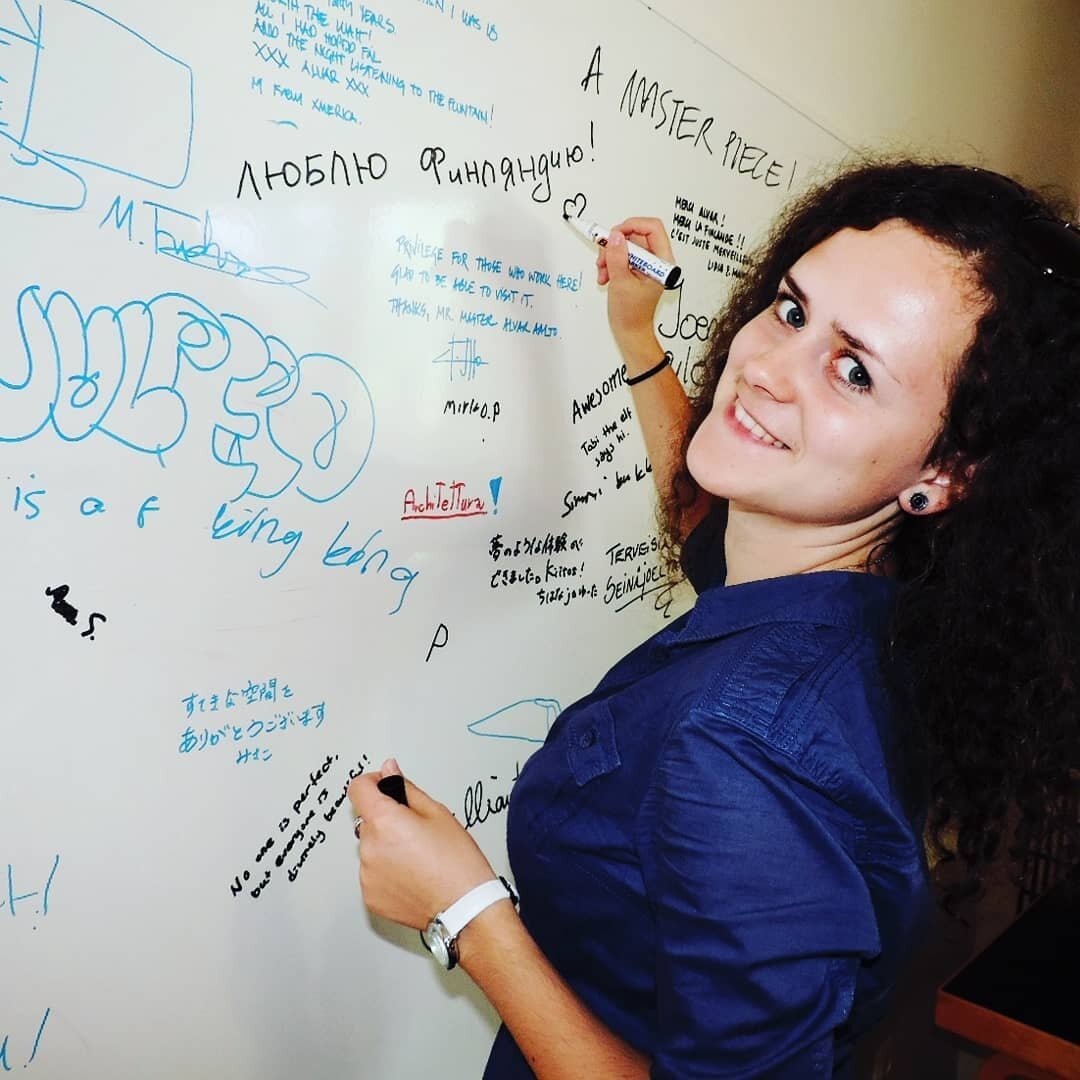 YEARS.
WHEN I WAS 18
WORTH THE WAIT!
ALL I HAD HOPED FOR
AND THE NIGHT LISTENING TO THE FOUNTAIN!
XXX ALVAR XXX
M FROM XMERICA.
A MASTER PIECE!
ЛЮБЛЮ Финляндию!
MERCI ALVAR!
MERCI LA FINLANDE!!
C'EST JUSTE MERVEILLEU
PRIVILEGE FOR THOSE WHO WORK HERE!
GLAD TO BE ABLE TO VISIT IT.
THANKS, MR. MASTER ALVAR AALTO.
WHITEBOARD
Joen
Mirka O.P
Awesome
Tobi the elf
says hi.
ARCHITETTURA!
is a f king kong
夢のような体験が
できました。Kiitos!
TERVEISIÄ
SEINÄJOEL
P
S.
すてきな空間を
ありがとうございます
No one is perfect,
but everyone is
divinely beautiful!
H!